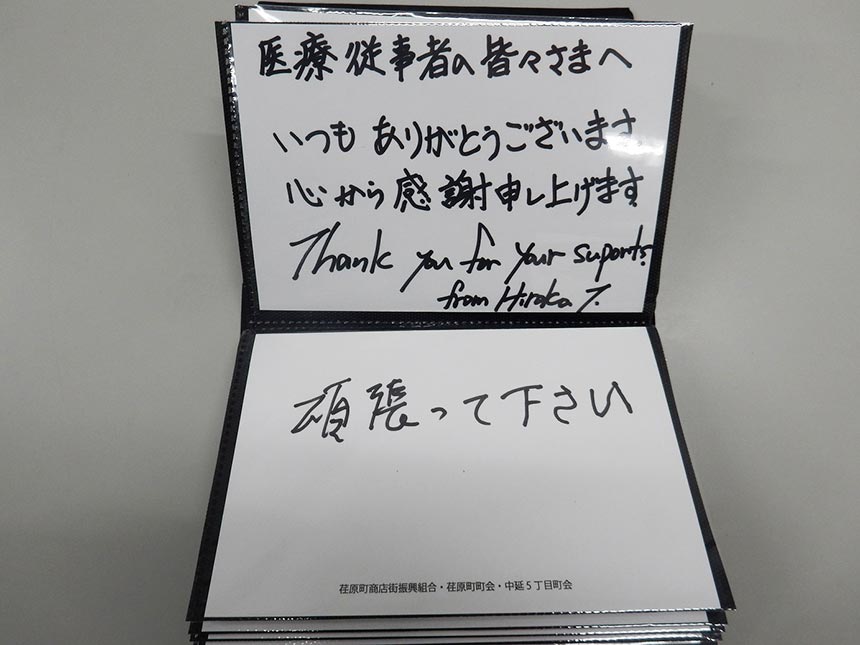 医療従事者の皆々さまへ
いつもありがとうございます。
心から感謝申し上げます
Thank you for your suports!
from Hiroka T.
頑張って下さい
荏原町商店街振興組合・荏原町町会・中延5丁目町会